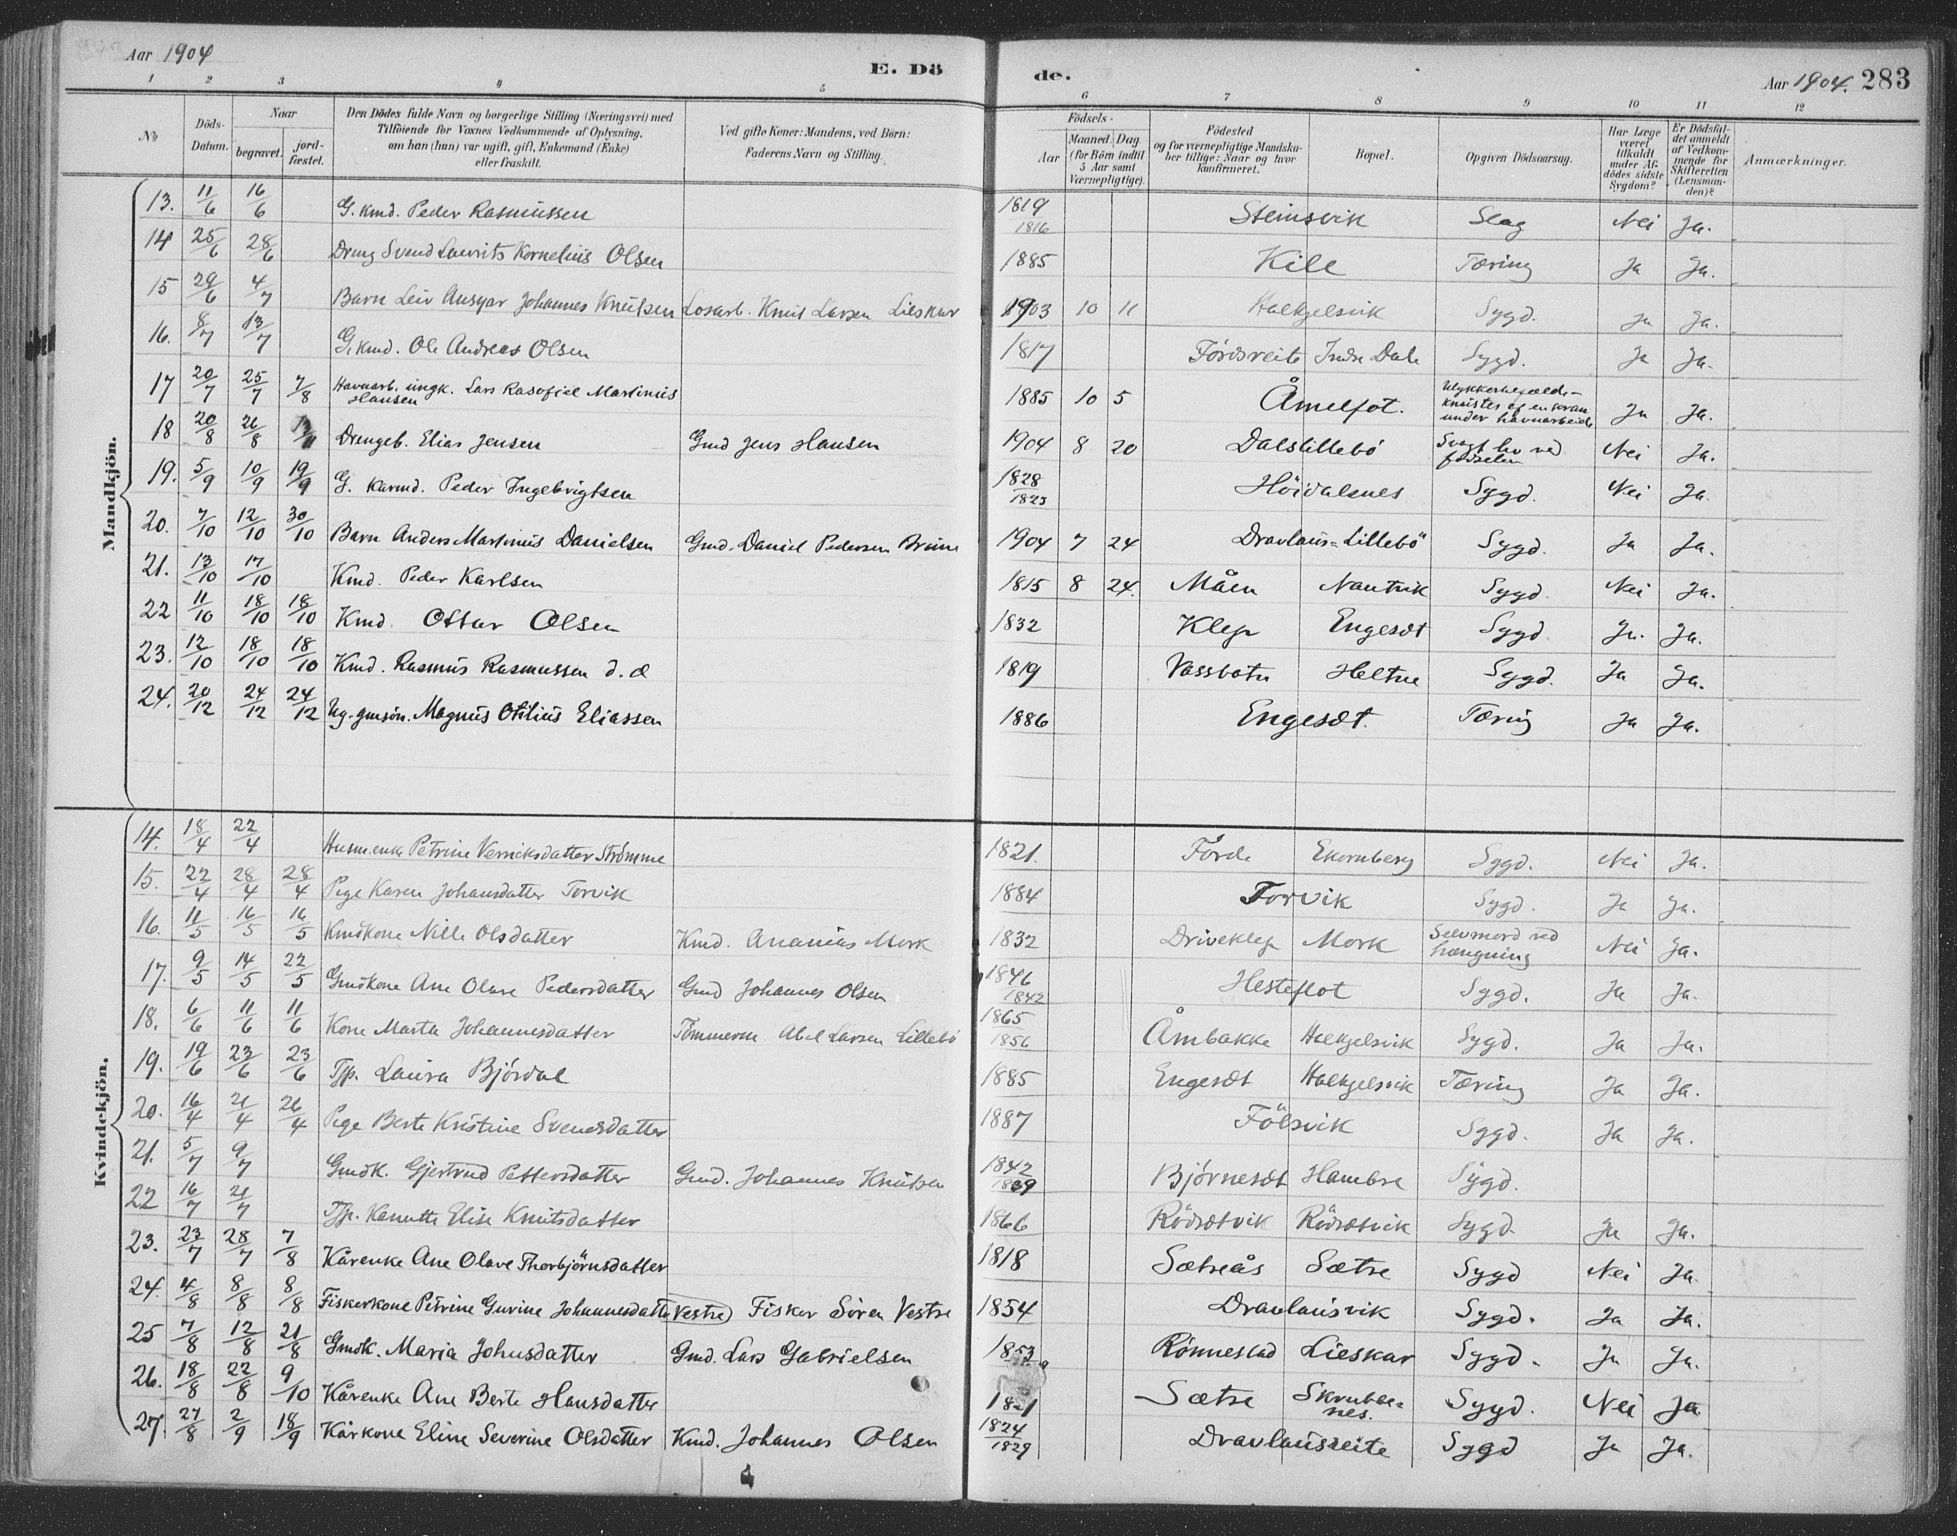 Aar 1904
E. Dö
de.
Aar 1904. 283
1 2 3 4 5 6 7 8 9 10 11 12
No Döds-Datum. Naar begravet. jord-fæstet. Den Dödes fulde Navn og borgerlige Stilling (Næringsvei) med Tilföiende for Voxnes Vedkommende af Oplysning, om han (hun) var ugift, gift, Enkemand (Enke) eller fraskilt. Ved gifte Koner: Mandens, ved Börn: Faderens Navn og Stilling. Födsels- Aar Maaned. Dag (for Börn indtil 5 Aar samt Værnepligtige). Födested og for værnepligtige Mandska-ber tillige: Naar og hvor konfirmeret. Bopæl. Opgiven Dödsaarsag. Har Læge været tilkaldt under Af-dödes sidste Sygdom? Er Dödsfal-det anmeldt af Vedkom-mende for Skifteretten (Lensman-den)? Anmærkninger.
Mandkjön.
13. 11/6 16/6 G. kmd. Peder Rasmussen 1819 1816 Steinsvik Slag Nei Ja.
14 25/6 28/6 Dreng Svend Laurits Kornelius Olsen 1885 Kile Tæring Ja Ja.
15 29/6 4/7 Barn Leiv Ansgar Johannes Knutsen Losarb. Knut Larsen Lieskar 1903 10 11 Halkjelsvik Sygd. Ja Ja.
16. 8/7 13/7 G. kmd. Ole Andreas Olsen 1817 Fördsreite Indre Dale Sygd. Ja Ja.
17 20/7 25/7 7/8 Havnarb. ungk. Lars Rasofiel Martinus Hansen 1885 10 5 Åmelfot. Ulykkestilfælde - knustes af en kran under havnarbeide Ja Ja.
18 20/8 26/8 Drengeb. Elias Jensen Gmd Jens Hansen 1904 8 20 Dalslillebö Svagt liv ved födselen Nei Ja.
19. 5/9 10/9 19/9 G. Karmd. Peder Ingebrigtsen 1828 1823 Höidalsnes Sygd. Nei Ja.
20. 7/10 12/10 30/10 Barn Anders Martinus Danielsen Gmd. Daniel Pedersen Brune 1904 7 24 Dravlaus-Lillebö Sygd. Ja Ja.
21. 13/10 17/10 Kmd. Peder Karlsen 1815 8 24. Måen Nautvik Sygd. Nei Ja.
22 11/10 18/10 18/10 Kmd. Ottar Olsen 1832 Klep Engeset Sygd. Ja. Ja.
23. 12/10 18/10 18/10 Kmd. Rasmus Rasmussen d.æ 1819 Vassbotn Heltne Sygd. Ja Ja.
24. 20/12 24/12 24/12 Ug. gmsön. Magnus Otilius Eliassen 1886 Engesæt. Tæring Ja Ja.
Kvindekjön.
14. 18/4 22/4 Husm.enke Petrine Verniksdatter Strømme 1821. Förde Ekornberg Sygd. Nei Ja.
15. 22/4 28/4 28/4 Pige Karen Johansdatter Torvik 1884 Torvik Sygd. Ja Ja.
16. 11/5 16/5 16/5 Kmdkone Nille Olsdatter Kmd. Ananias Mork 1832 Driveklep Mork Selvmord ved hængning Nei Ja.
17. 9/5 14/5 22/5 Gmdkone Ane Olave Pedersdatter Gmd Johannes Olsen 1846 1842 Hesteflot Sygd. Ja Ja.
18. 6/6 11/6 11/6 Kone Marta Johannesdatter Tömmerm Abel Larsen Lillebö 1865 1856 Åmbakke Halkjelsvik Sygd. Ja Ja.
19. 19/6 23/6 23/6 Tjp. Laura Bjørdal 1885 Engesæt Halkjelsvik Tæring Ja Ja.
20. 16/4 21/4 26/4 Pige Berte Kristine Svensdatter 1887 Fölsvik Sygd. Ja Ja.
21. 5/7 9/7 Gmdk. Gjertrud Pettersdatter Gmd. Johannes Knutsen 1842 1839 Bjørnesæt Hambre Sygd.
22 16/7 21/7 Tjp. Kanutte Elise Knutsdatter 1866 Rödsætvik Rödsætvik Sygd. Ja Ja.
23. 23/7 28/7 7/8 Kårenke Ane Olave Thorbjörnsdatter 1818 Sætreås Sætre Sygd Nei Ja
24. 4/8 8/8 8/8 Fiskerkone Petrine Gurine Johannesdatter (Vestre) Fisker Sören Vestre 1854 Dravlausvik Sygd. Ja Ja.
25 7/8 12/8 21/8 Gmdk. Maria Johnsdatter Gmd. Lars Gabrielsen 1853 Rönnestad Lieskar Sygd. Ja Ja.
26. 18/8 22/8 9/10 Kårenke Ane Berte Hansdatter 1821 Sætre Skrubbe-nes. Sygd. Nei Ja
27. 27/8 2/9 18/9 Kårkone Eline Severine Olsdatter Kmd. Johannes Olsen 1824 1829 Dravlausreite Sygd Ja Ja.